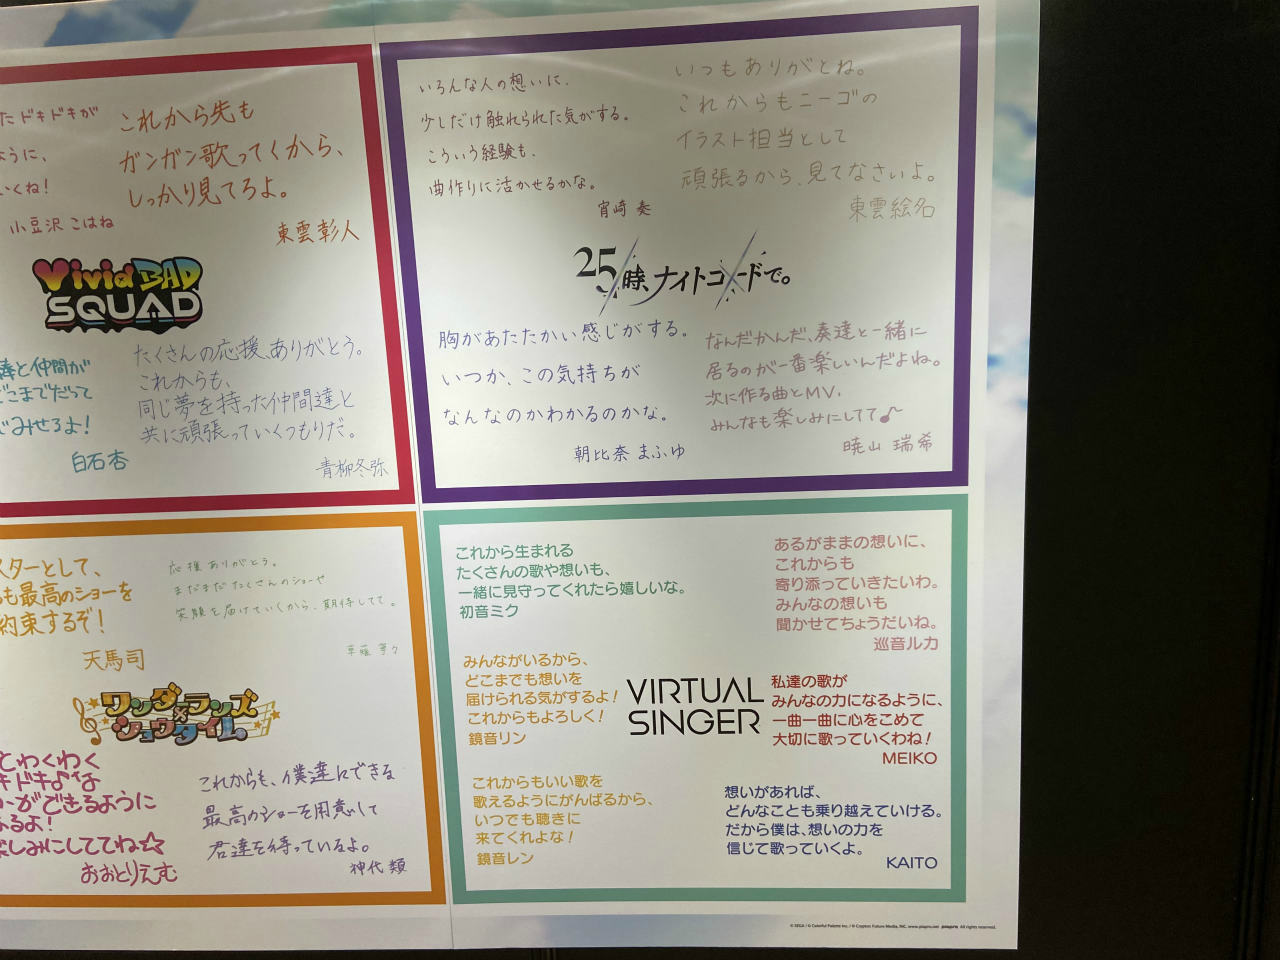 たドキドキが
ように、
いくね!
小豆沢 こはね
これから先も
ガンガン歌ってくから、
しっかり見てろよ。
東雲彰人
Vivid BAD
SQUAD
達と仲間が
どこまでだって
じみせるよ!
白石杏
たくさんの応援、ありがとう。
これからも、
同じ夢を持った仲間達と
共に頑張っていくつもりだ。
青柳冬弥
いろんな人の想いに、
少しだけ触れられた気がする。
こういう経験も、
曲作りに活かせるかな。
宵崎 奏
いつもありがとね。
これからもニーゴの
イラスト担当として
頑張るから、見てなさいよ。
東雲絵名
25時、ナイトコードで。
胸があたたかい感じがする。
いつか、この気持ちが
なんなのかわかるのかな。
朝比奈 まふゆ
なんだかんだ、奏達と一緒に
居るのが一番楽しいんだよね。
次に作る曲とMV、
みんなも楽しみにしてて♪
暁山 瑞希
スターとして、
も最高のショーを
約束するぞ!
天馬司
応援ありがとう。
まだまだたくさんのショーや
笑顔を届けていくから、期待してて。
草薙 寧々
ワンダーランズ
×
ショウタイム
とわくわく
キドキ♪な
ーができるように
るよ!
楽しみにしててね☆
おおとりえむ
これからも、僕達にできる
最高のショーを用意して
君達を待っているよ。
神代 類
これから生まれる
たくさんの歌や想いも、
一緒に見守ってくれたら嬉しいな。
初音ミク
あるがままの想いに、
これからも
寄り添っていきたいわ。
みんなの想いも
聞かせてちょうだいね。
巡音ルカ
みんながいるから、
どこまでも想いを
届けられる気がするよ!
これからもよろしく!
鏡音リン
VIRTUAL
SINGER
私達の歌が
みんなの力になるように、
一曲一曲に心をこめて
大切に歌っていくわね!
MEIKO
これからもいい歌を
歌えるようにがんばるから、
いつでも聴きに
来てくれよな!
鏡音レン
想いがあれば、
どんなことも乗り越えていける。
だから僕は、想いの力を
信じて歌っていくよ。
KAITO
© SEGA / © Colorful Palette Inc. / © Crypton Future Media, INC. www.piapro.net piapro All rights reserved.